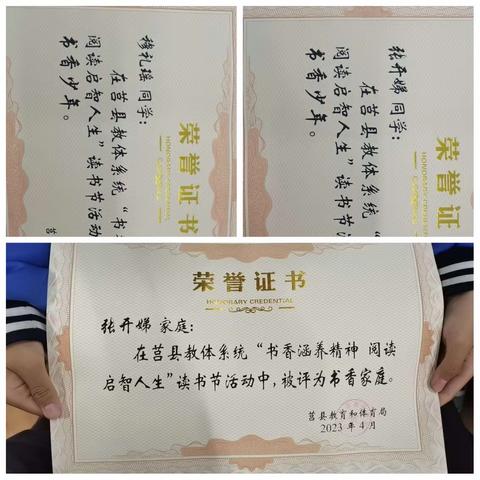 穆礼瑶 同学：
在莒县教体系统“书
阅读启智人生”读书节活动
书香少年。
荣誉证书
HONORARY CREDENTIAL
莒
张开娣 同学：
在莒县教体系统“
阅读启智人生”读书节
书香少年。
荣誉证
HONORARY CREDE
荣誉证书
HONORARY CREDENTIAL
张开娣 家庭：
在莒县教体系统“书香涵养精神 阅读
启智人生”读书节活动中，被评为书香家庭。
莒县教育和体育局
2023 年 4 月